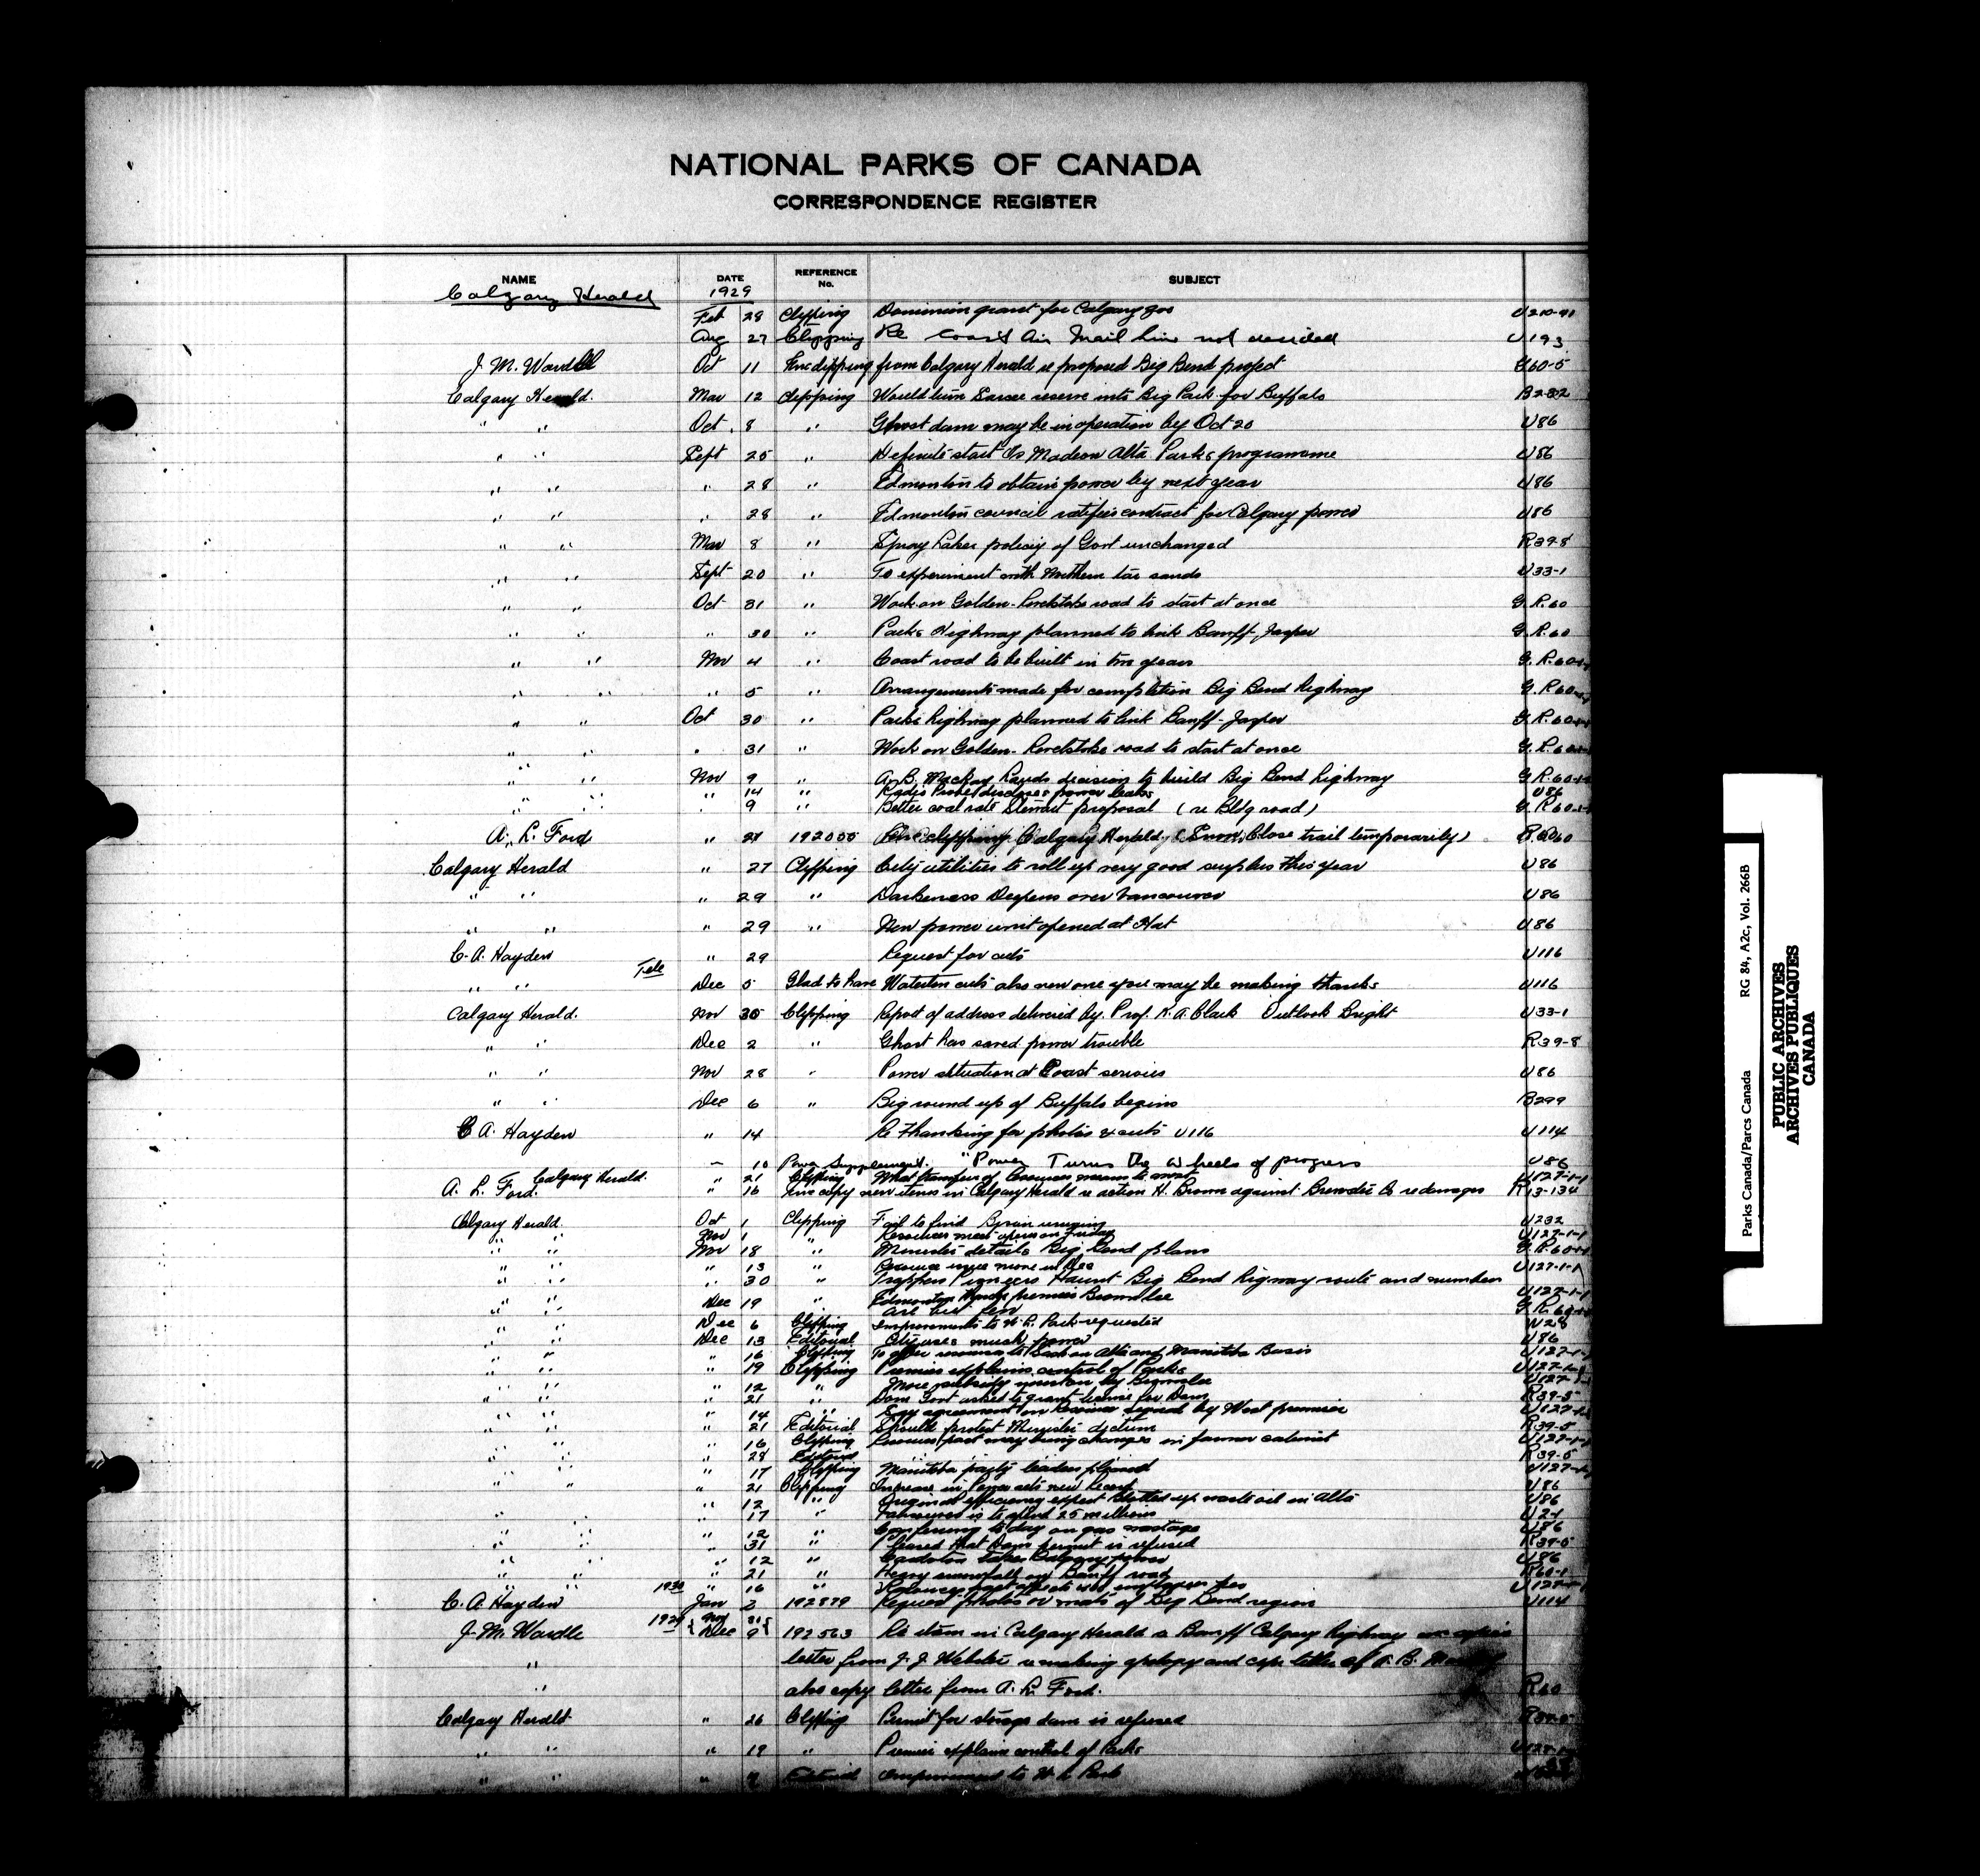 NATIONAL PARKS OF CANADA
CORRESPONDENCE REGISTER
NAME DATE REFERENCE No. SUBJECT
Calgary Herald 1929
Feb 28 Clipping Dominion grant for Calgary zoo U210-41
Aug 27 Clipping Re Coast Air Mail line not decided U193
J. M. Wardle Oct 11 Enc clipping from Calgary Herald re proposed Big Bend project 60-5
Calgary Herald. Mar 12 Clipping Would turn Sarcee reserve into Big Park for Buffalo B2-82
" " Oct. 8 " Ghost dam may be in operation by Oct 20 U86
" " Sept 25 " Definite start to Madeon Alta Parks programme U86
" " " 28 " Edmonton to obtain power by next year U86
" " " 28 " Edmonton council ratifies contract for Calgary power U86
" " Mar 8 " Spray Lakes policy of Govt unchanged R39-8
" " Sept 20 " To experiment with Northern tar sands U33-1
" " Oct 31 " Work on Golden-Revelstoke road to start at once G.R.60
" " " 30 " Parks Highway planned to link Banff-Jasper G.R.60
" " Nov 4 " Coast road to be built in two years G.R.60
" " " 5 " Arrangements made for completion Big Bend highway G.R.60
" " Oct 30 " Parks highway planned to link Banff-Jasper G.R.60
" " " 31 " Work on Golden-Revelstoke road to start at once G.R.60
" " Nov 9 " A.B. Mackay lauds decision to build Big Bend highway G.R.60
" " " 14 " Radio Probe discloses power leaks U86
" " " 9 " Better coal rate Stewart proposal (re Bldg road) G.R.60
A. L. Ford " 27 192055 Enc clipping Calgary Herald (Snow Close trail temporarily) 60
Calgary Herald " 27 Clipping City utilities to roll up very good surplus this year U86
" " " 29 " Darkness Deepens over Vancouver U86
" " " 29 " New power unit opened at Hat U86
C. A. Hayden " 29 Request for cuts U116
" " Tele Dec 5 Glad to have Waterton cuts also new one you may be making thanks U116
Calgary Herald. Nov 30 Clipping Report of address delivered by. Prof. K. A. Clark Outlook Bright U33-1
" " Dec 2 " Ghost has saved power trouble R39-8
" " Nov 28 " Power situation at Coast serious U86
" " Dec 6 " Big round up of Buffalo begins B299
C. A. Hayden " 14 Re thanking for photos & cuts U116 U114
" 10 Power Supplement. "Power Turns the wheels of progress U86
Calgary Herald. " 21 Clipping What transfer of Resources means to west U127-1-1
A. L. Ford. " 16 Enc copy new items in Calgary Herald re action H. Brown against Brewster Co re damages R13-134
Calgary Herald. Oct 1 Clipping Fail to find U232
" " Nov 1 " Resources meet opens on Friday U127-1-1
" " Nov 18 " Minister details Big Bend plans G.R.60
" " " 13 " Resource issue more in Dec U127-1-1
" " " 30 " Trappers Pioneers Haunt Big Bend higway route and number
are but few G.R.60
" " Dec 19 " Edmonton premier Brownlee U127-1-1
" " Dec 6 Clipping Improvements to W. L. Park requested W28
" " Dec 13 Editorial City uses much power U86
" " " 16 Clipping To offer resources to Sask on Alta and Manitoba Basis U127-1-1
" " " 19 Clipping Premier explains control of Parks U127-1-1
" " " 12 " More subsidy question by Brownlee U127-1-1
" " " 21 " Dom Govt asked to grant license for Dam R39-5
" " " 14 " Say agreement on Resources signed by West premier U127-1-1
" " " 21 Editorial Should protect Minnewanka R39-5
" " " 16 Clipping Resources pact may bring changes in former cabinet U127-1-1
" " " 28 Editorial R39-5
" " " 17 Clipping Manitoba party leaders pleased U127-1-1
" " " 21 Clipping Increase in Power sets new record U86
" " " 12 " Original efficiency expert blotted up waste oil in Alta U86
" " " 17 " Vancouver is to spend 25 millions U21
" " " 12 " Conferring to day on gas wastage U86
" " " 31 " Pleased that Dam permit is refused R39-5
" " " 12 " Cardston takes Calgary power U86
" " " 21 " Heavy snowfall on Banff road R60-1
" " " 16 " U127-1-1
C. A. Hayden 1930 Jan 2 192879 Request photos or mats of Big Bend region U114
J. M. Wardle 1929 Nov 21 Dec 9 192563 Re item in Calgary Herald re Banff Calgary highway
" letter from J. J. Webster re making apology and copy letter of A. B. Mackay
" also copy letter from A. L. Ford. R60
Calgary Herald " 26 Clipping Permit for storage dam is refused R39-5
" " " 19 " Premier explains control of Parks U127-1
" " " Editorial improvement to W L Park
Parks Canada/Parcs Canada RG 84, A2c, Vol. 266B
PUBLIC ARCHIVES
ARCHIVES PUBLIQUES
CANADA